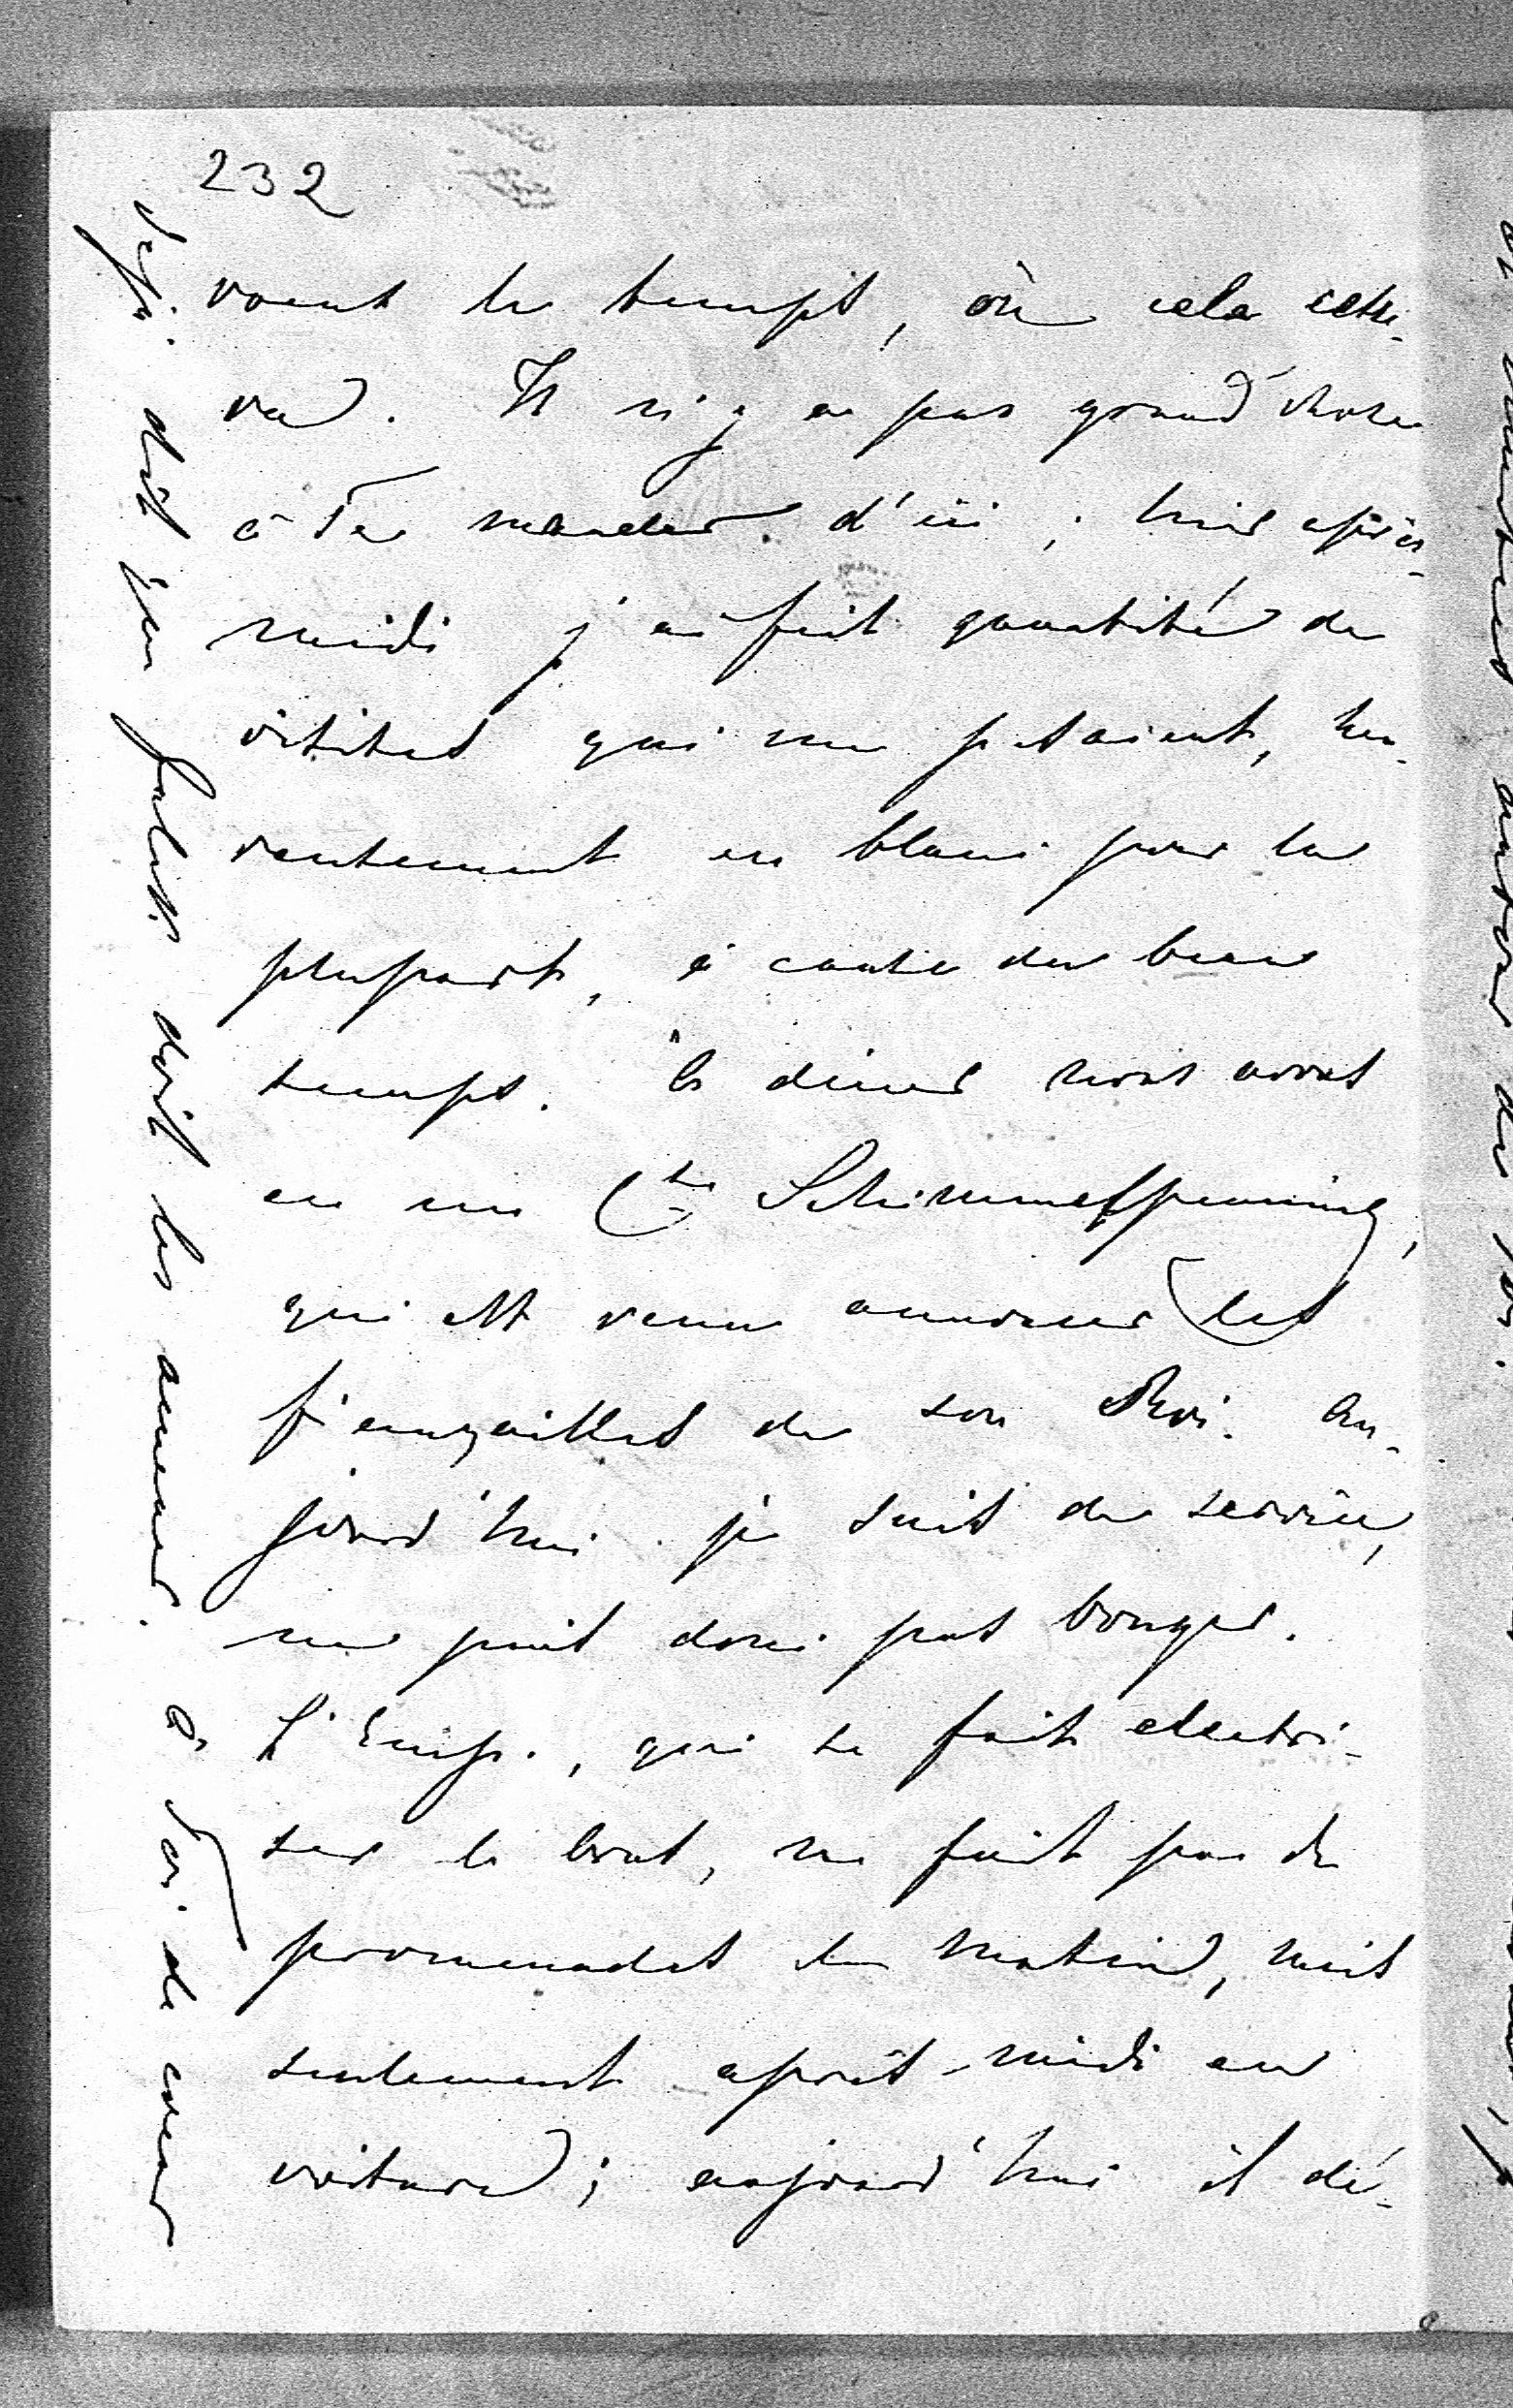 232
voeux le temps, où cela cesse-
ra. Il n'y a pas grand chose
à Te mander d'ici; hier après-
midi j'ai fait quantité de
visites qui me pesaient, heu-
reusement en blanc pour la
plupart, à cause du beau
temps. A dîner nous avons
eu un Cte Schimmelpenning,
qui est venu annoncer les
fiançailles de son Roi. Au-
jourd'hui je suis de service,
ne puis donc pas bouger.
L'Emp., qui se fait electri-
ser le bras, ne fait pas de
promenades du matin, mais
seulement après-midi en
voiture; aujourd'hui il dé-
déjà. dit que doit les amener. à Toi de coeur